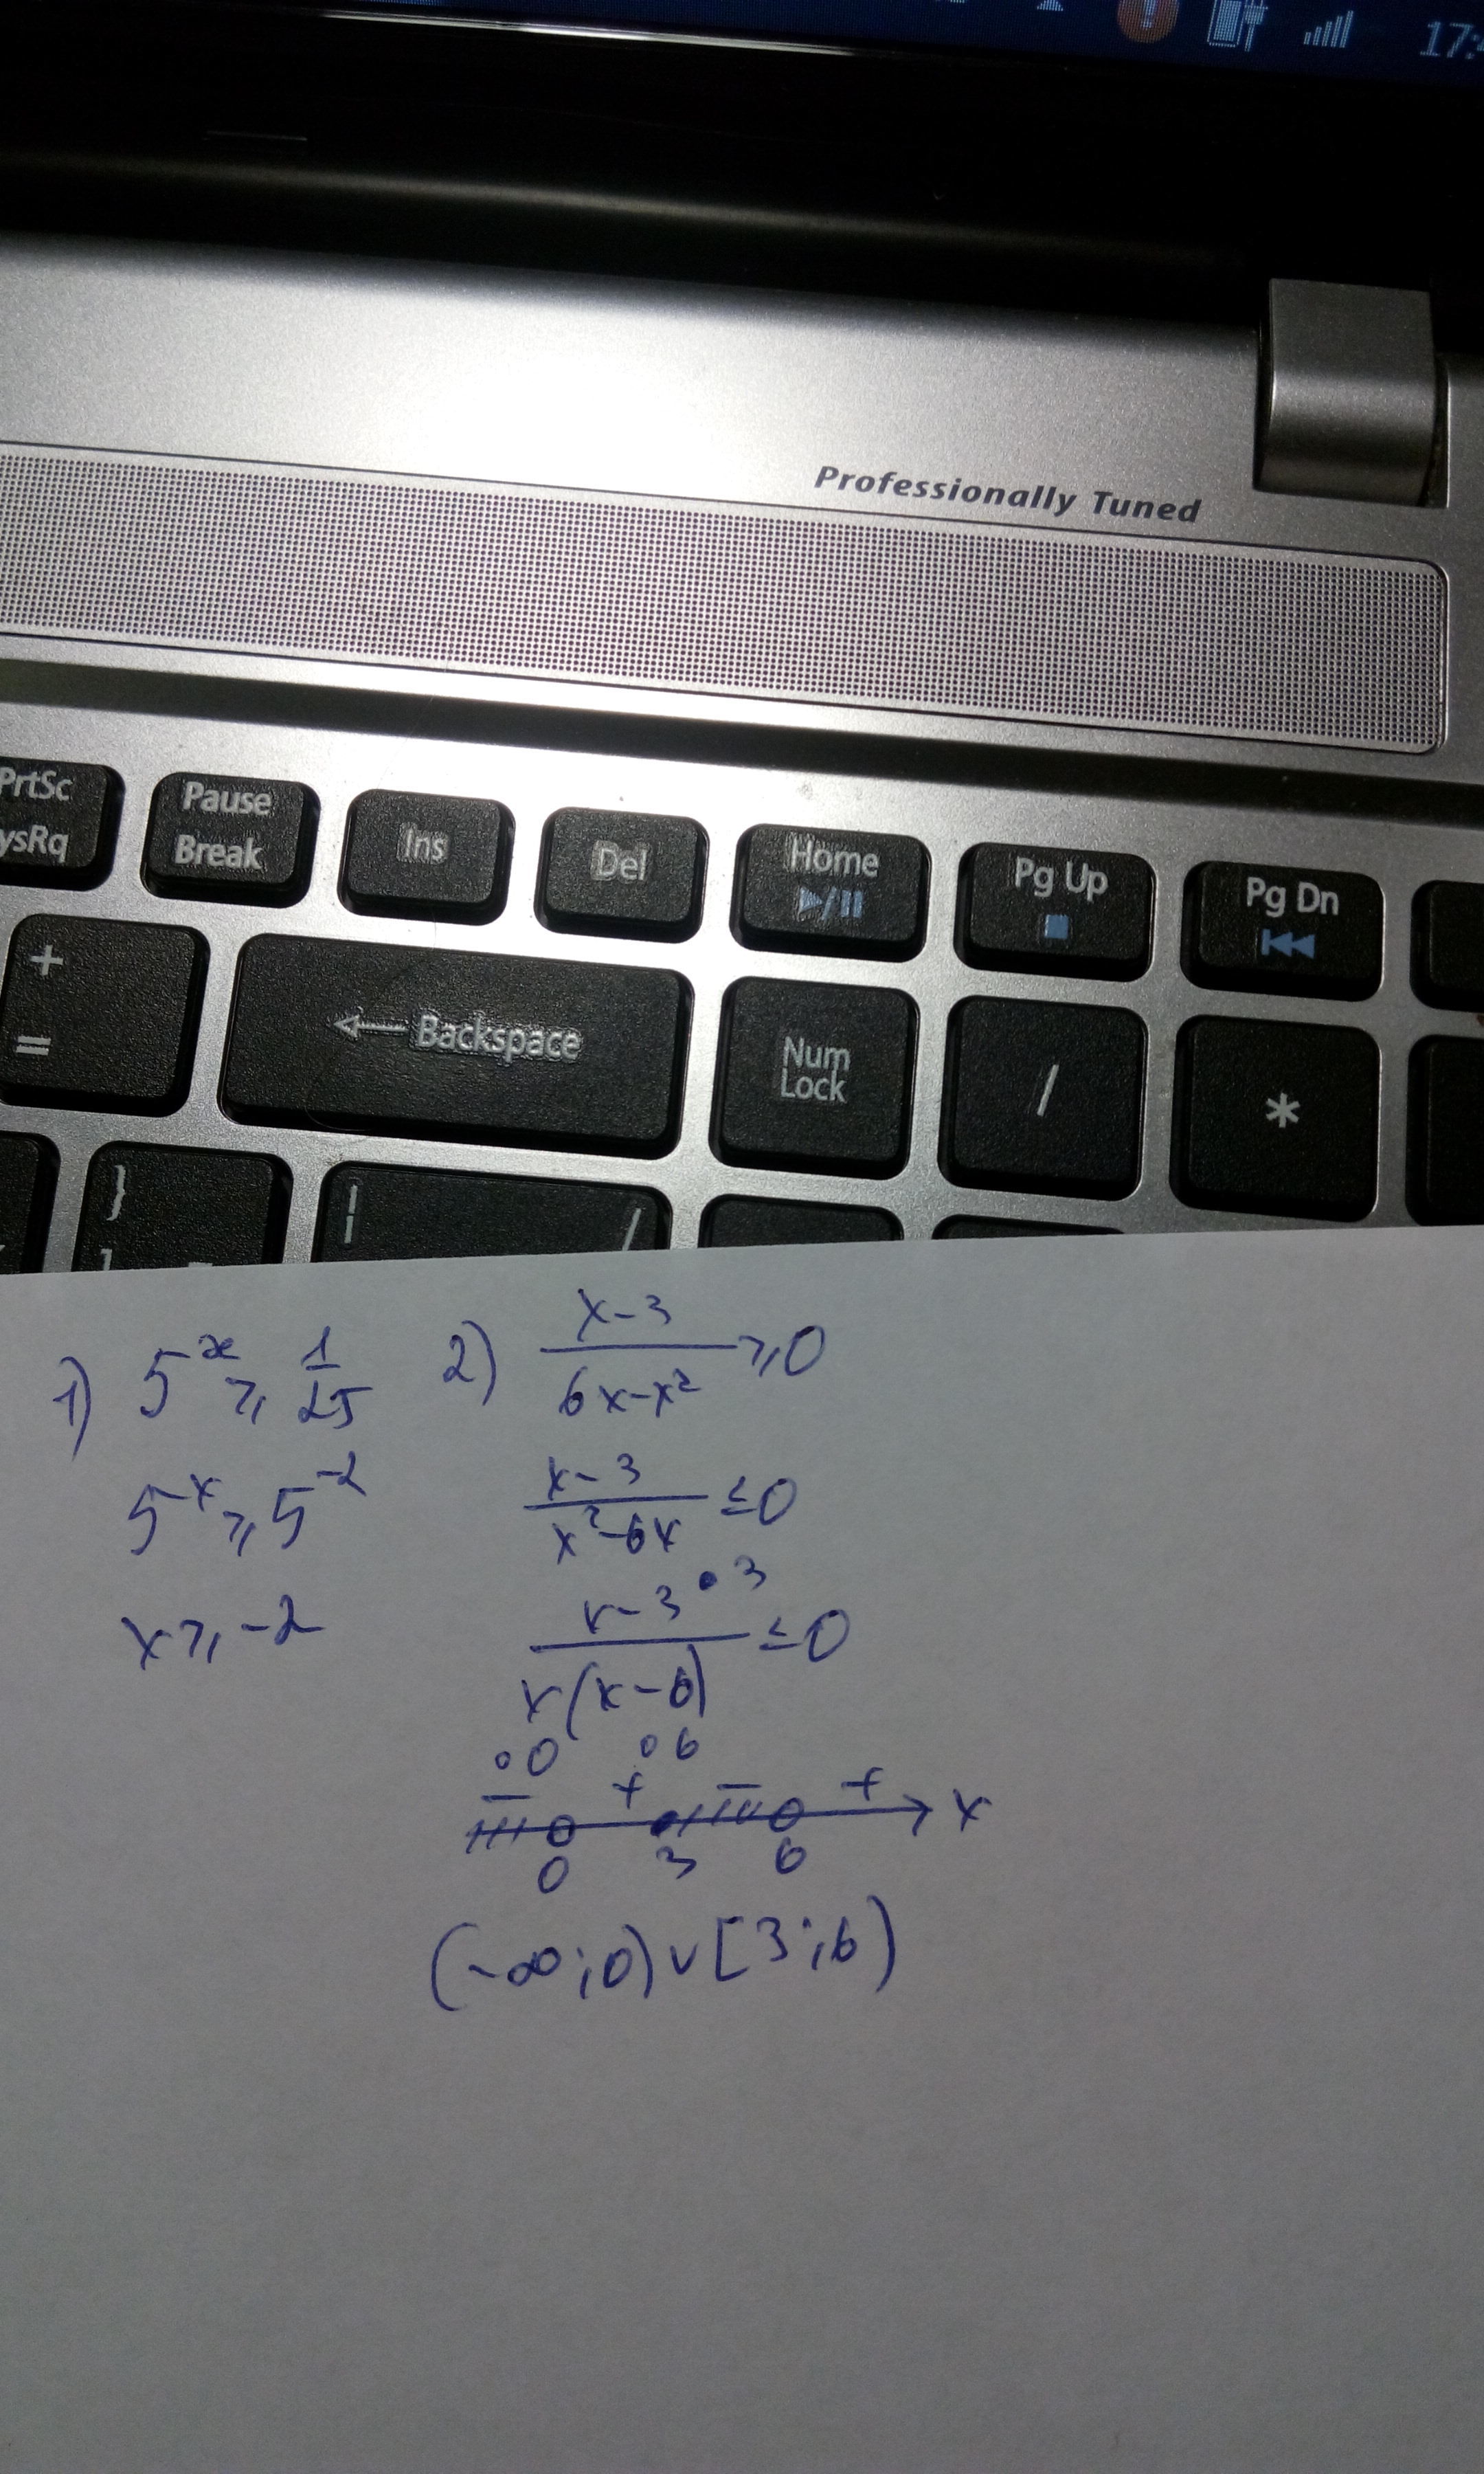 17:
Professionally Tuned
PrtSc
ysRq
Pause
Break
Ins
Del
Home
Pg Up
Pg Dn
+
=
← Backspace
Num
Lock
/
*
}
]
|
/
1) 5^x ≥ 1/25
5^x ≥ 5^-2
x ≥ -2
2) (x-3)/(6x-x²) ≥ 0
(x-3)/(x²-6x) ≤ 0
(x-3)/(x(x-6)) ≤ 0
• 3
∘ 0 ∘ 6
- + - + x
0 3 6
(-∞;0)∪[3;6)